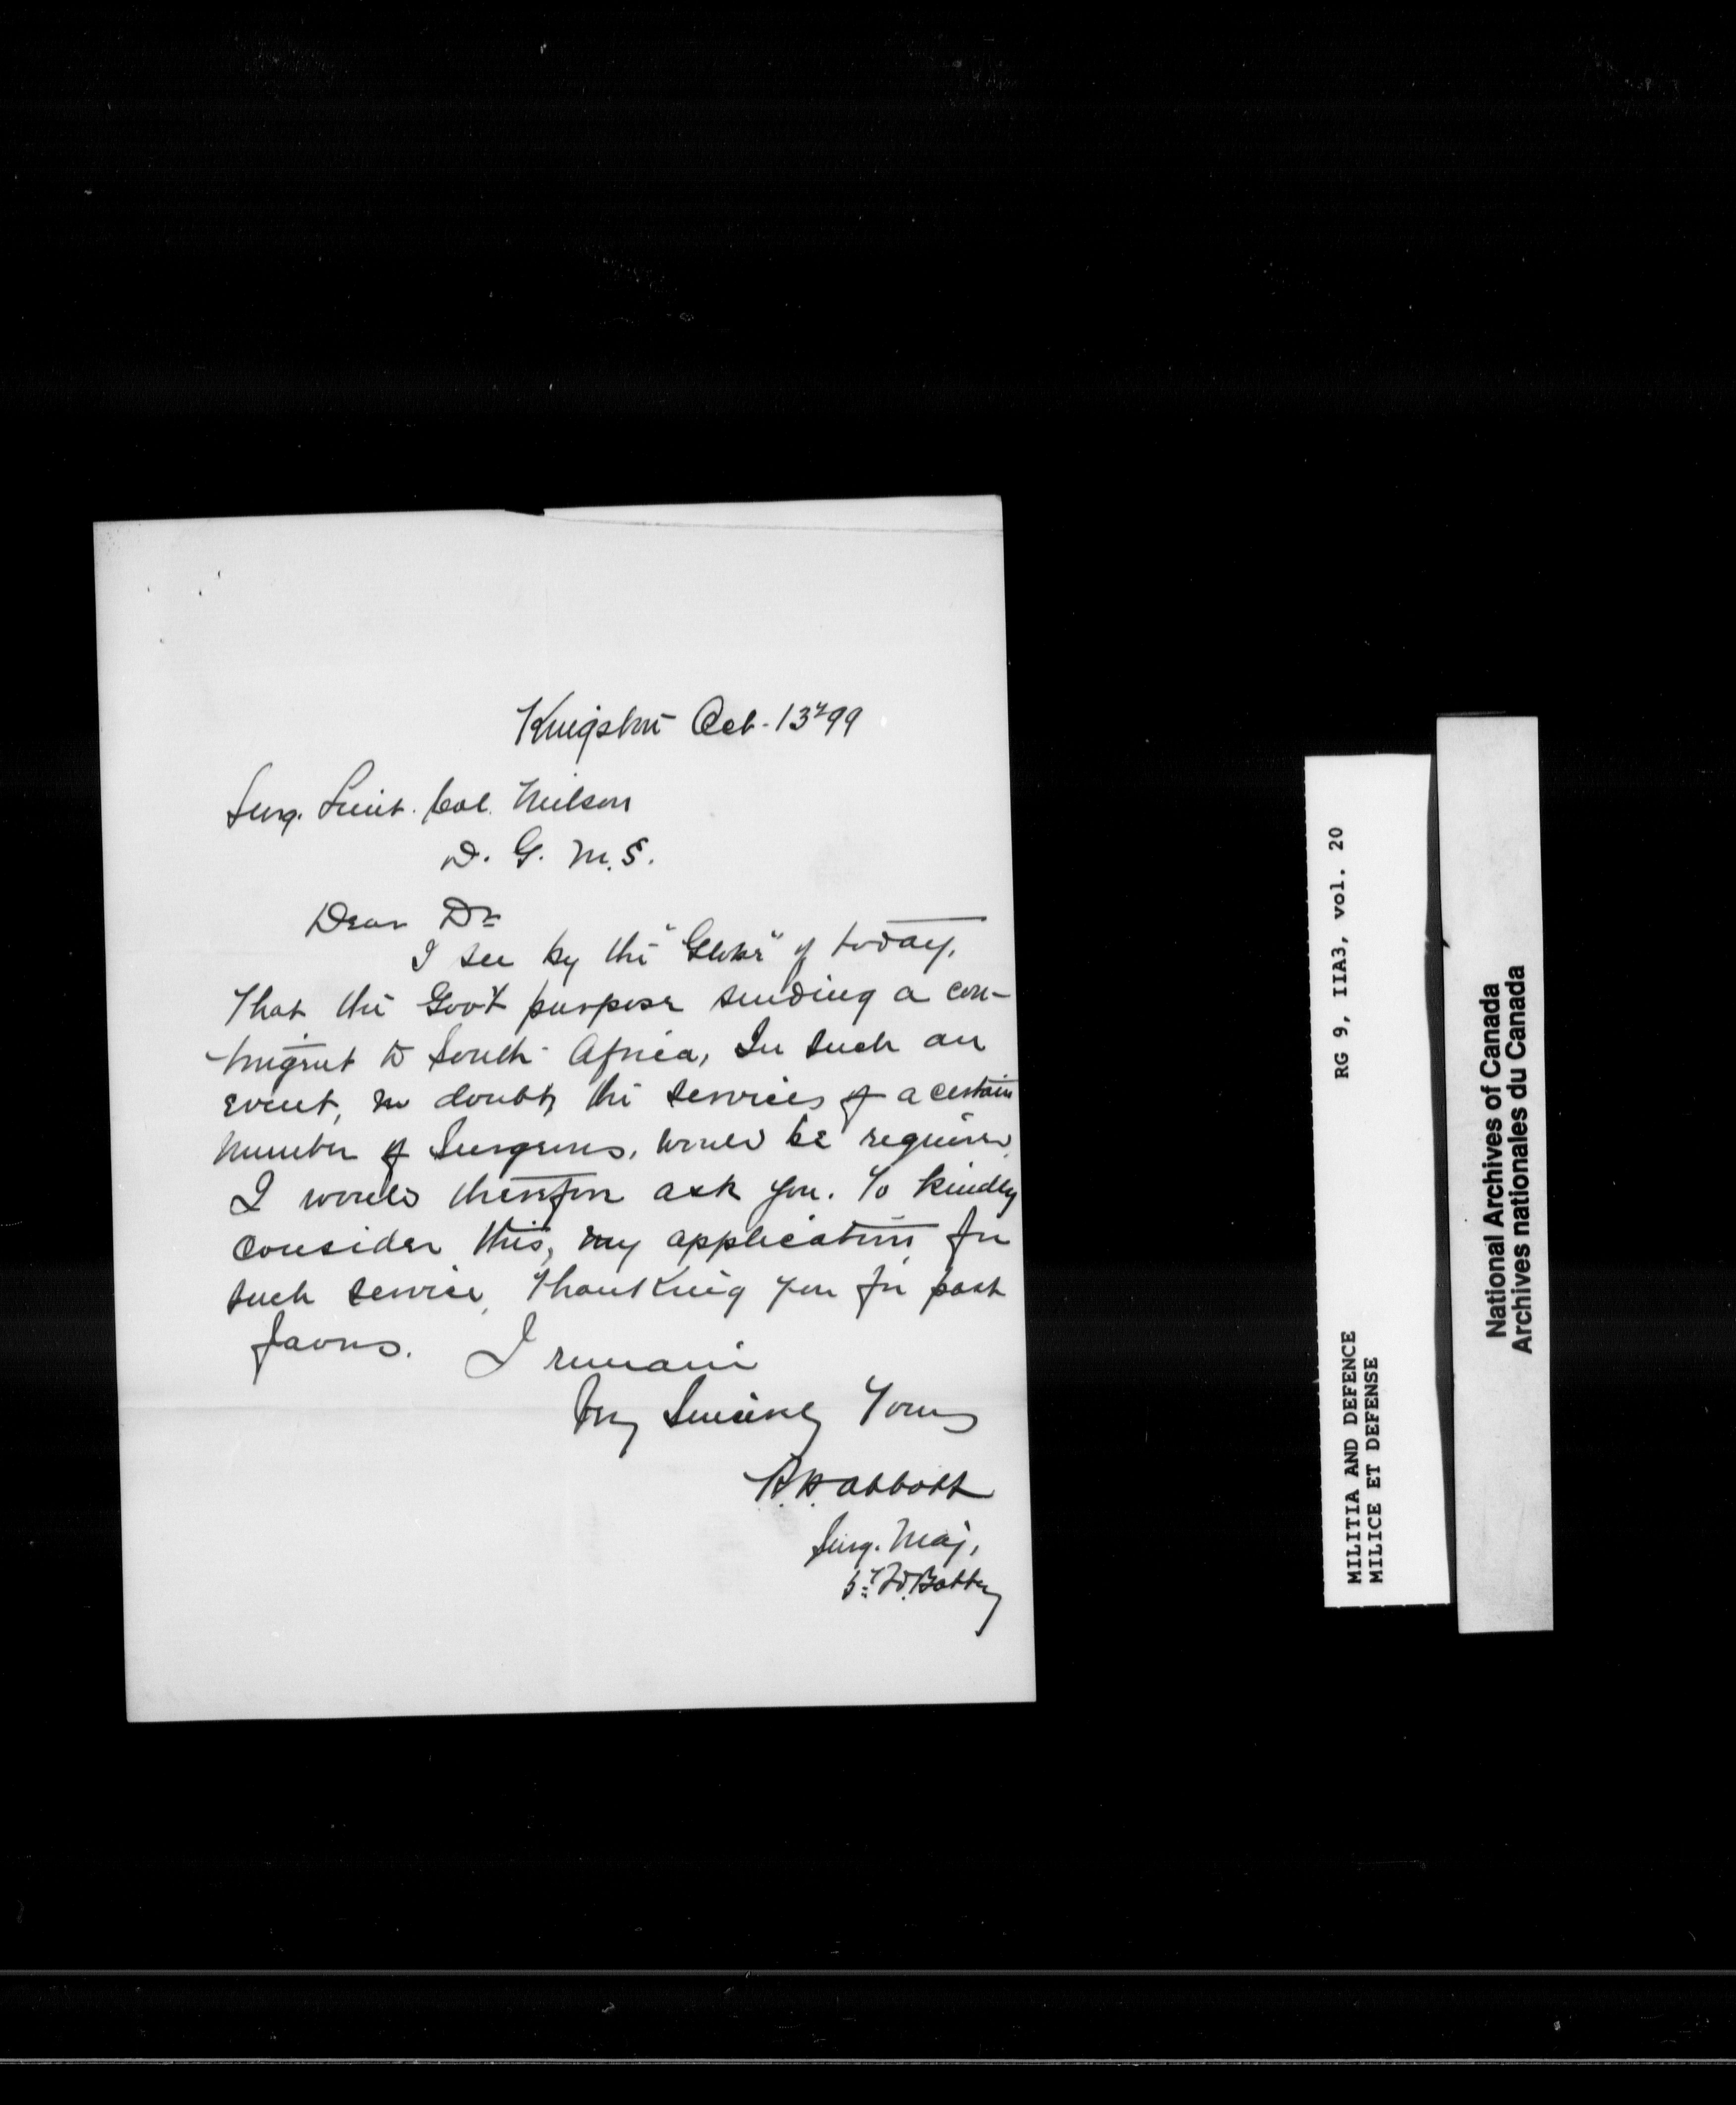 Kingston Oct. 13th 99
Surg. Lieut. Col. Neilson
D. G. M. S.
Dear Dr
I see by the "Globe" of today,
That the Gov't purpose sending a con-
tingent to South Africa, In such an
event, no doubt, the services of a certain
number of Surgeons, would be required,
I would therefore ask you. To kindly
consider this, my application for
such service, Thanking you for past
favors. I remain
Very Sincerely Yours
A. H. Abbott
Surg. Maj,
Fd. Batty
RG 9, IIA3, vol. 20
MILITIA AND DEFENCE
MILICE ET DEFENSE
National Archives of Canada
Archives nationales du Canada